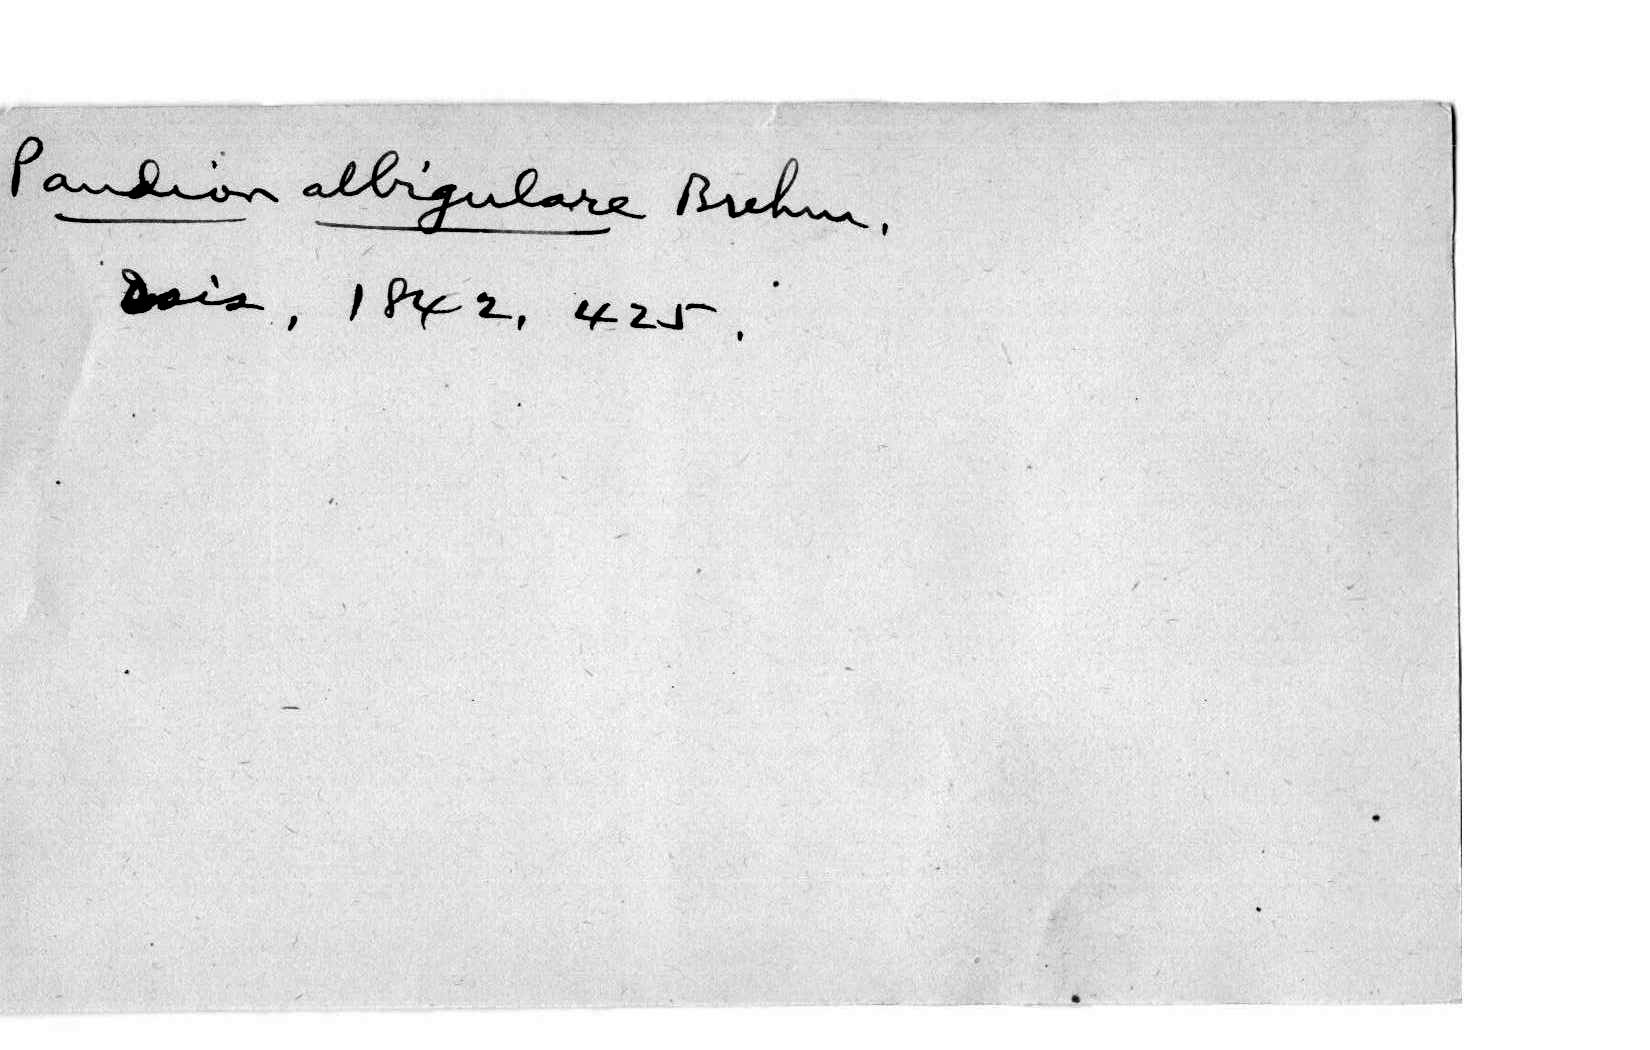 Pandion albigulare Brehm.
Isis, 1842, 425.